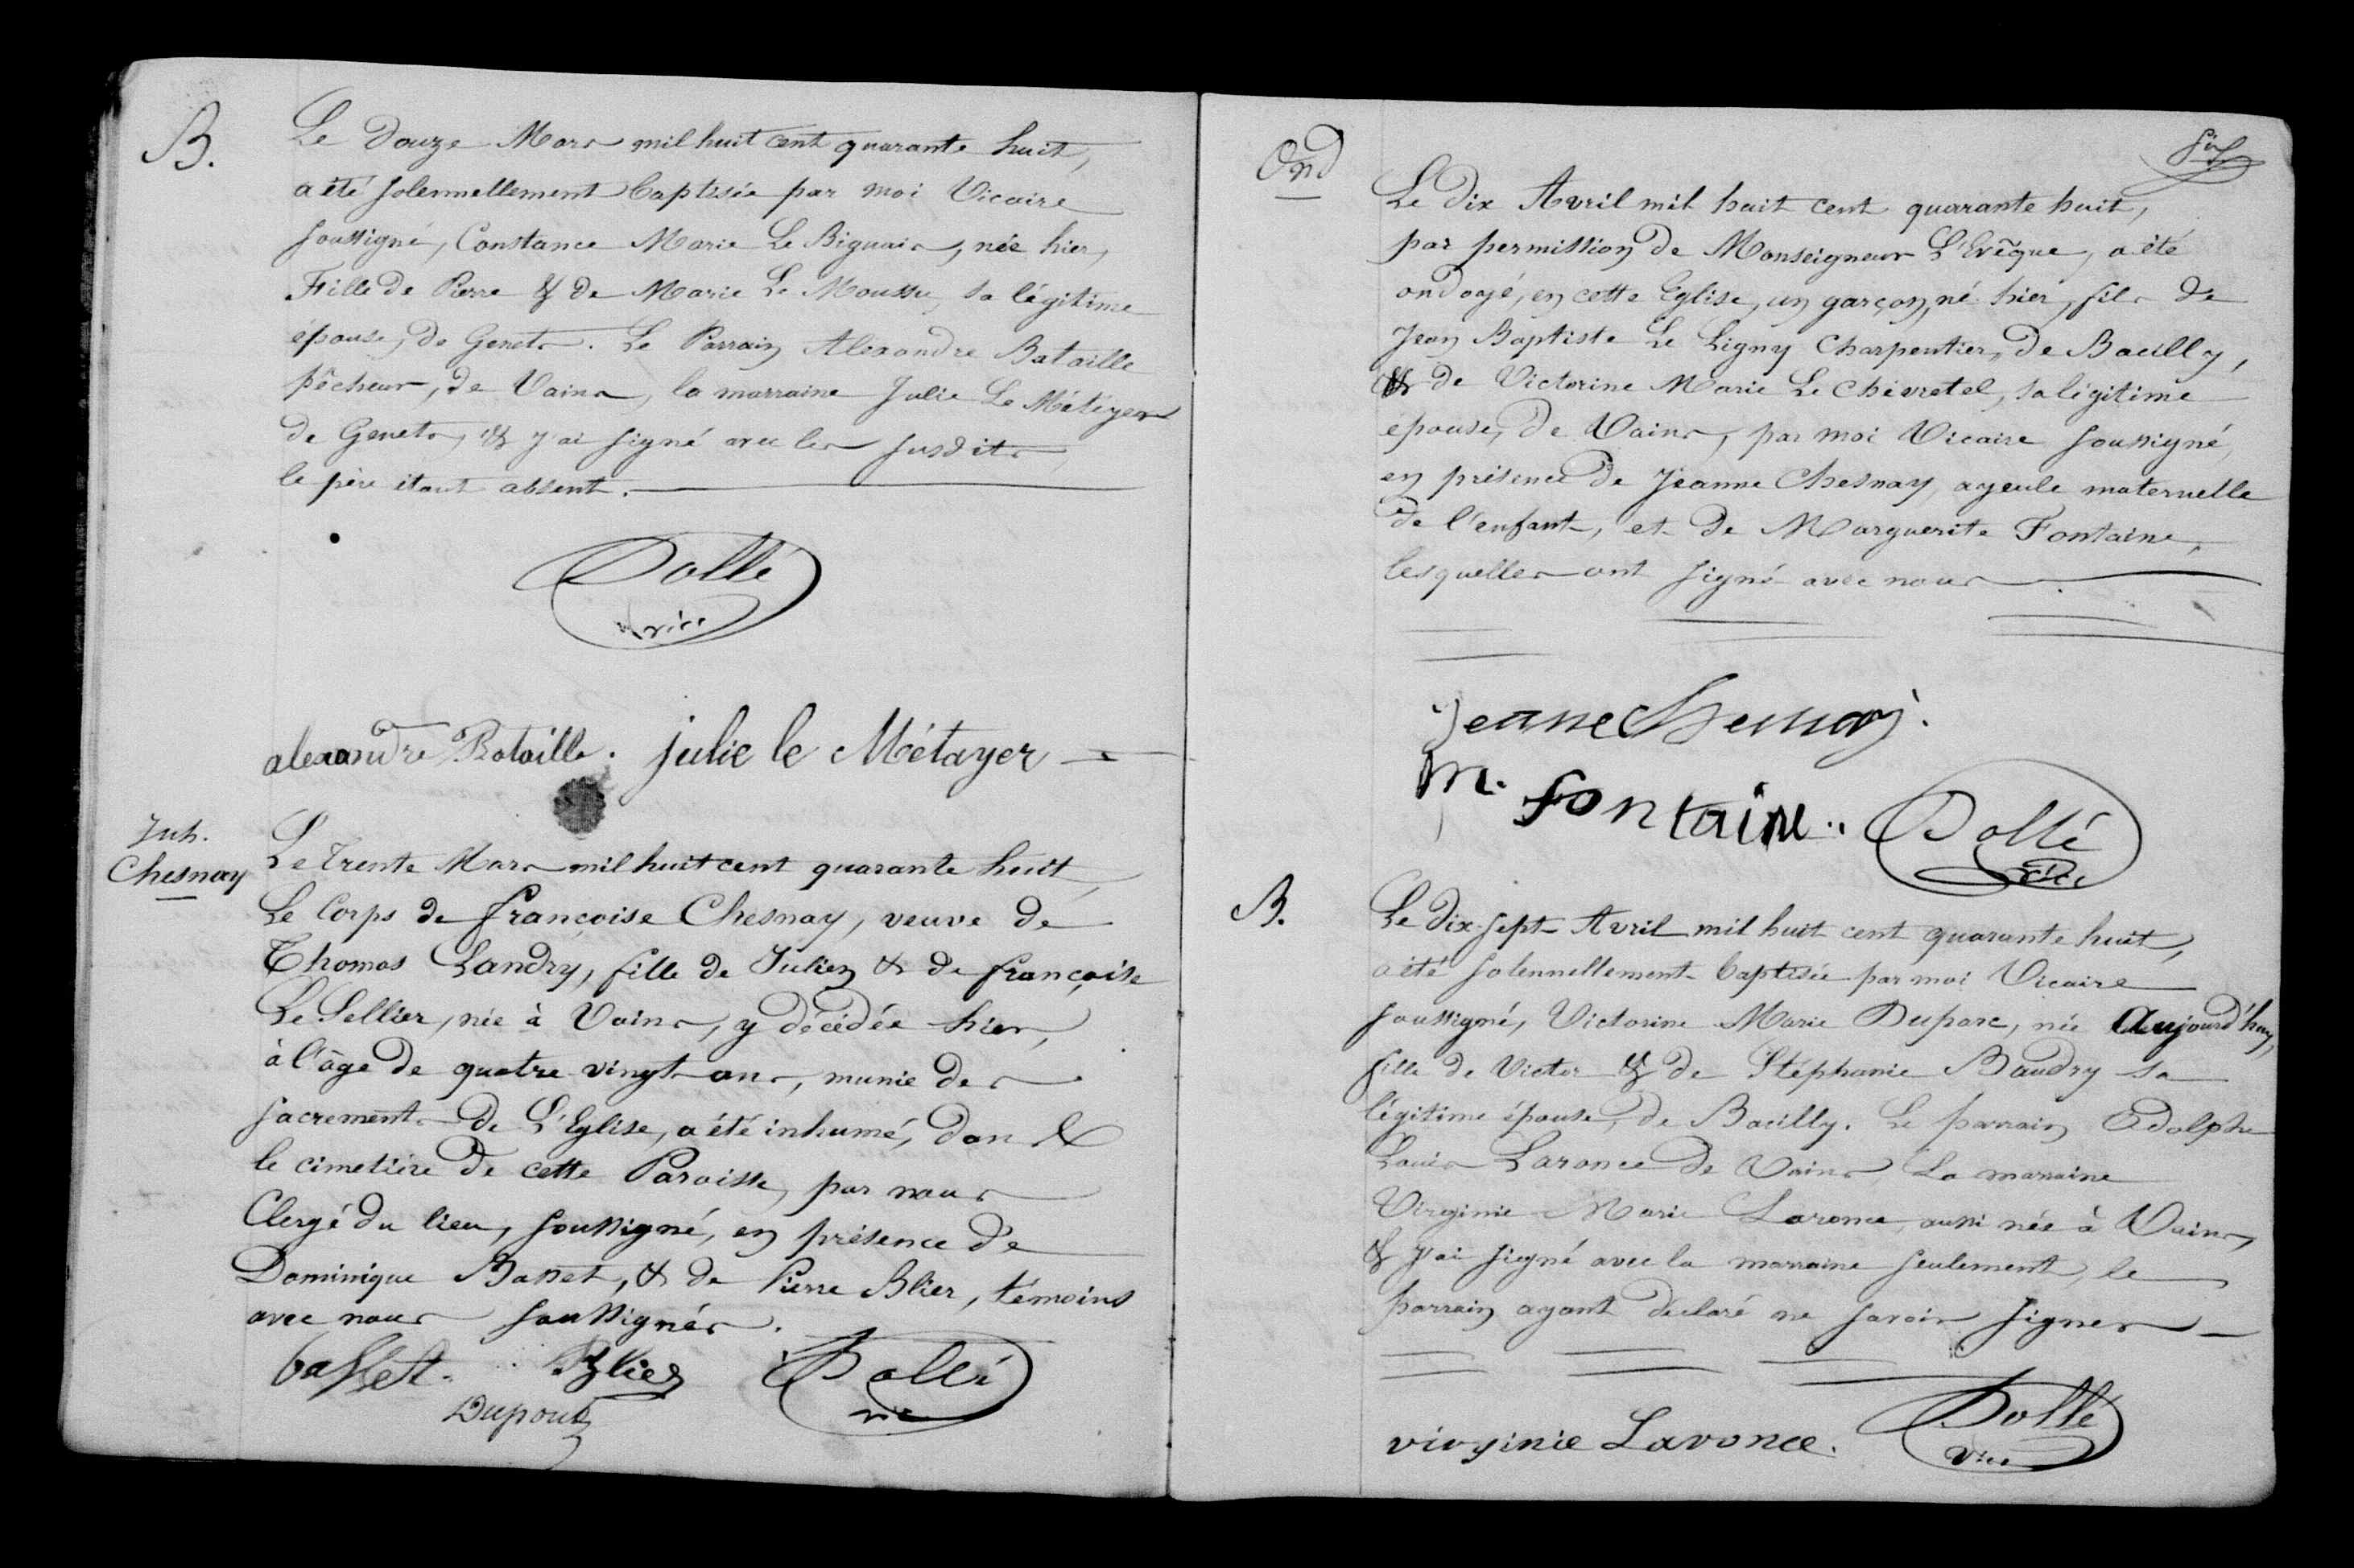 B.
Le Douze Mars mil huit cent quarante huit,
a été solennellement baptisée par moi Vicaire
soussigné, Constance Marie Le Biguais, née hier,
Fille de Pierre & de Marie Le Moussu, sa légitime
épouse, de Genets. Le Parrain Alexandre Bataille
pêcheur, de Vains, la marraine Julie Le Météyer
de Genets, & j'ai signé avec les susdits,
le père étant absent.
Dollé
vice
alexandre Bataille. julie le Métayer
Inh.
Chesnay
Le trente Mars mil huit cent quarante huit,
Le Corps de françoise Chesnay, veuve de
Thomas Landry, fille de Julien & de françoise
Le Sellier, née à Vains, y décédée hier,
à l'âge de quatre vingt ans, munie des
sacrements de L'Eglise, a été inhumé, dans
le cimetière de cette Paroisse, par nous
Clergé du lieu, soussigné, en présence de
Dominique Basset, & de Pierre Blier, témoins
avec nous soussignés.
basset. Blier Dollé
Dupont vic
Ond
Le dix Avril mil huit cent quarante huit,
par permission de Monseigneur L'Evêque, a été
ondoyé, en cette Eglise, un garçon, né hier, fils de
Jean Baptiste Le Ligny Charpentier, de Bacilly,
& de Victorine Marie Le Chevretel, sa légitime
épouse, de Vains, par moi Vicaire soussigné,
en présence de Jeanne Chesnay, ayeule maternelle
de l'enfant, et de Marguerite Fontaine,
lesquelles ont signé avec nous.
Jeanne Chesnay.
m. fontaine. Dollé
vice
B.
Le dix-sept Avril mil huit cent quarante huit,
a été solennellement baptisée par moi Vicaire
soussigné, Victorine Marie Duparc, née Aujourd'huy,
fille de Victor & de Stéphanie Baudry sa
légitime épouse, de Bacilly. Le parrain Adolphe
Louis Laronce de Vains, La marraine
Virginie Marie Laronce, aussi née à Vains,
& j'ai signé avec la marraine seulement, le
parrain ayant déclaré ne savoir signer
virginie Laronce. Dollé
vice